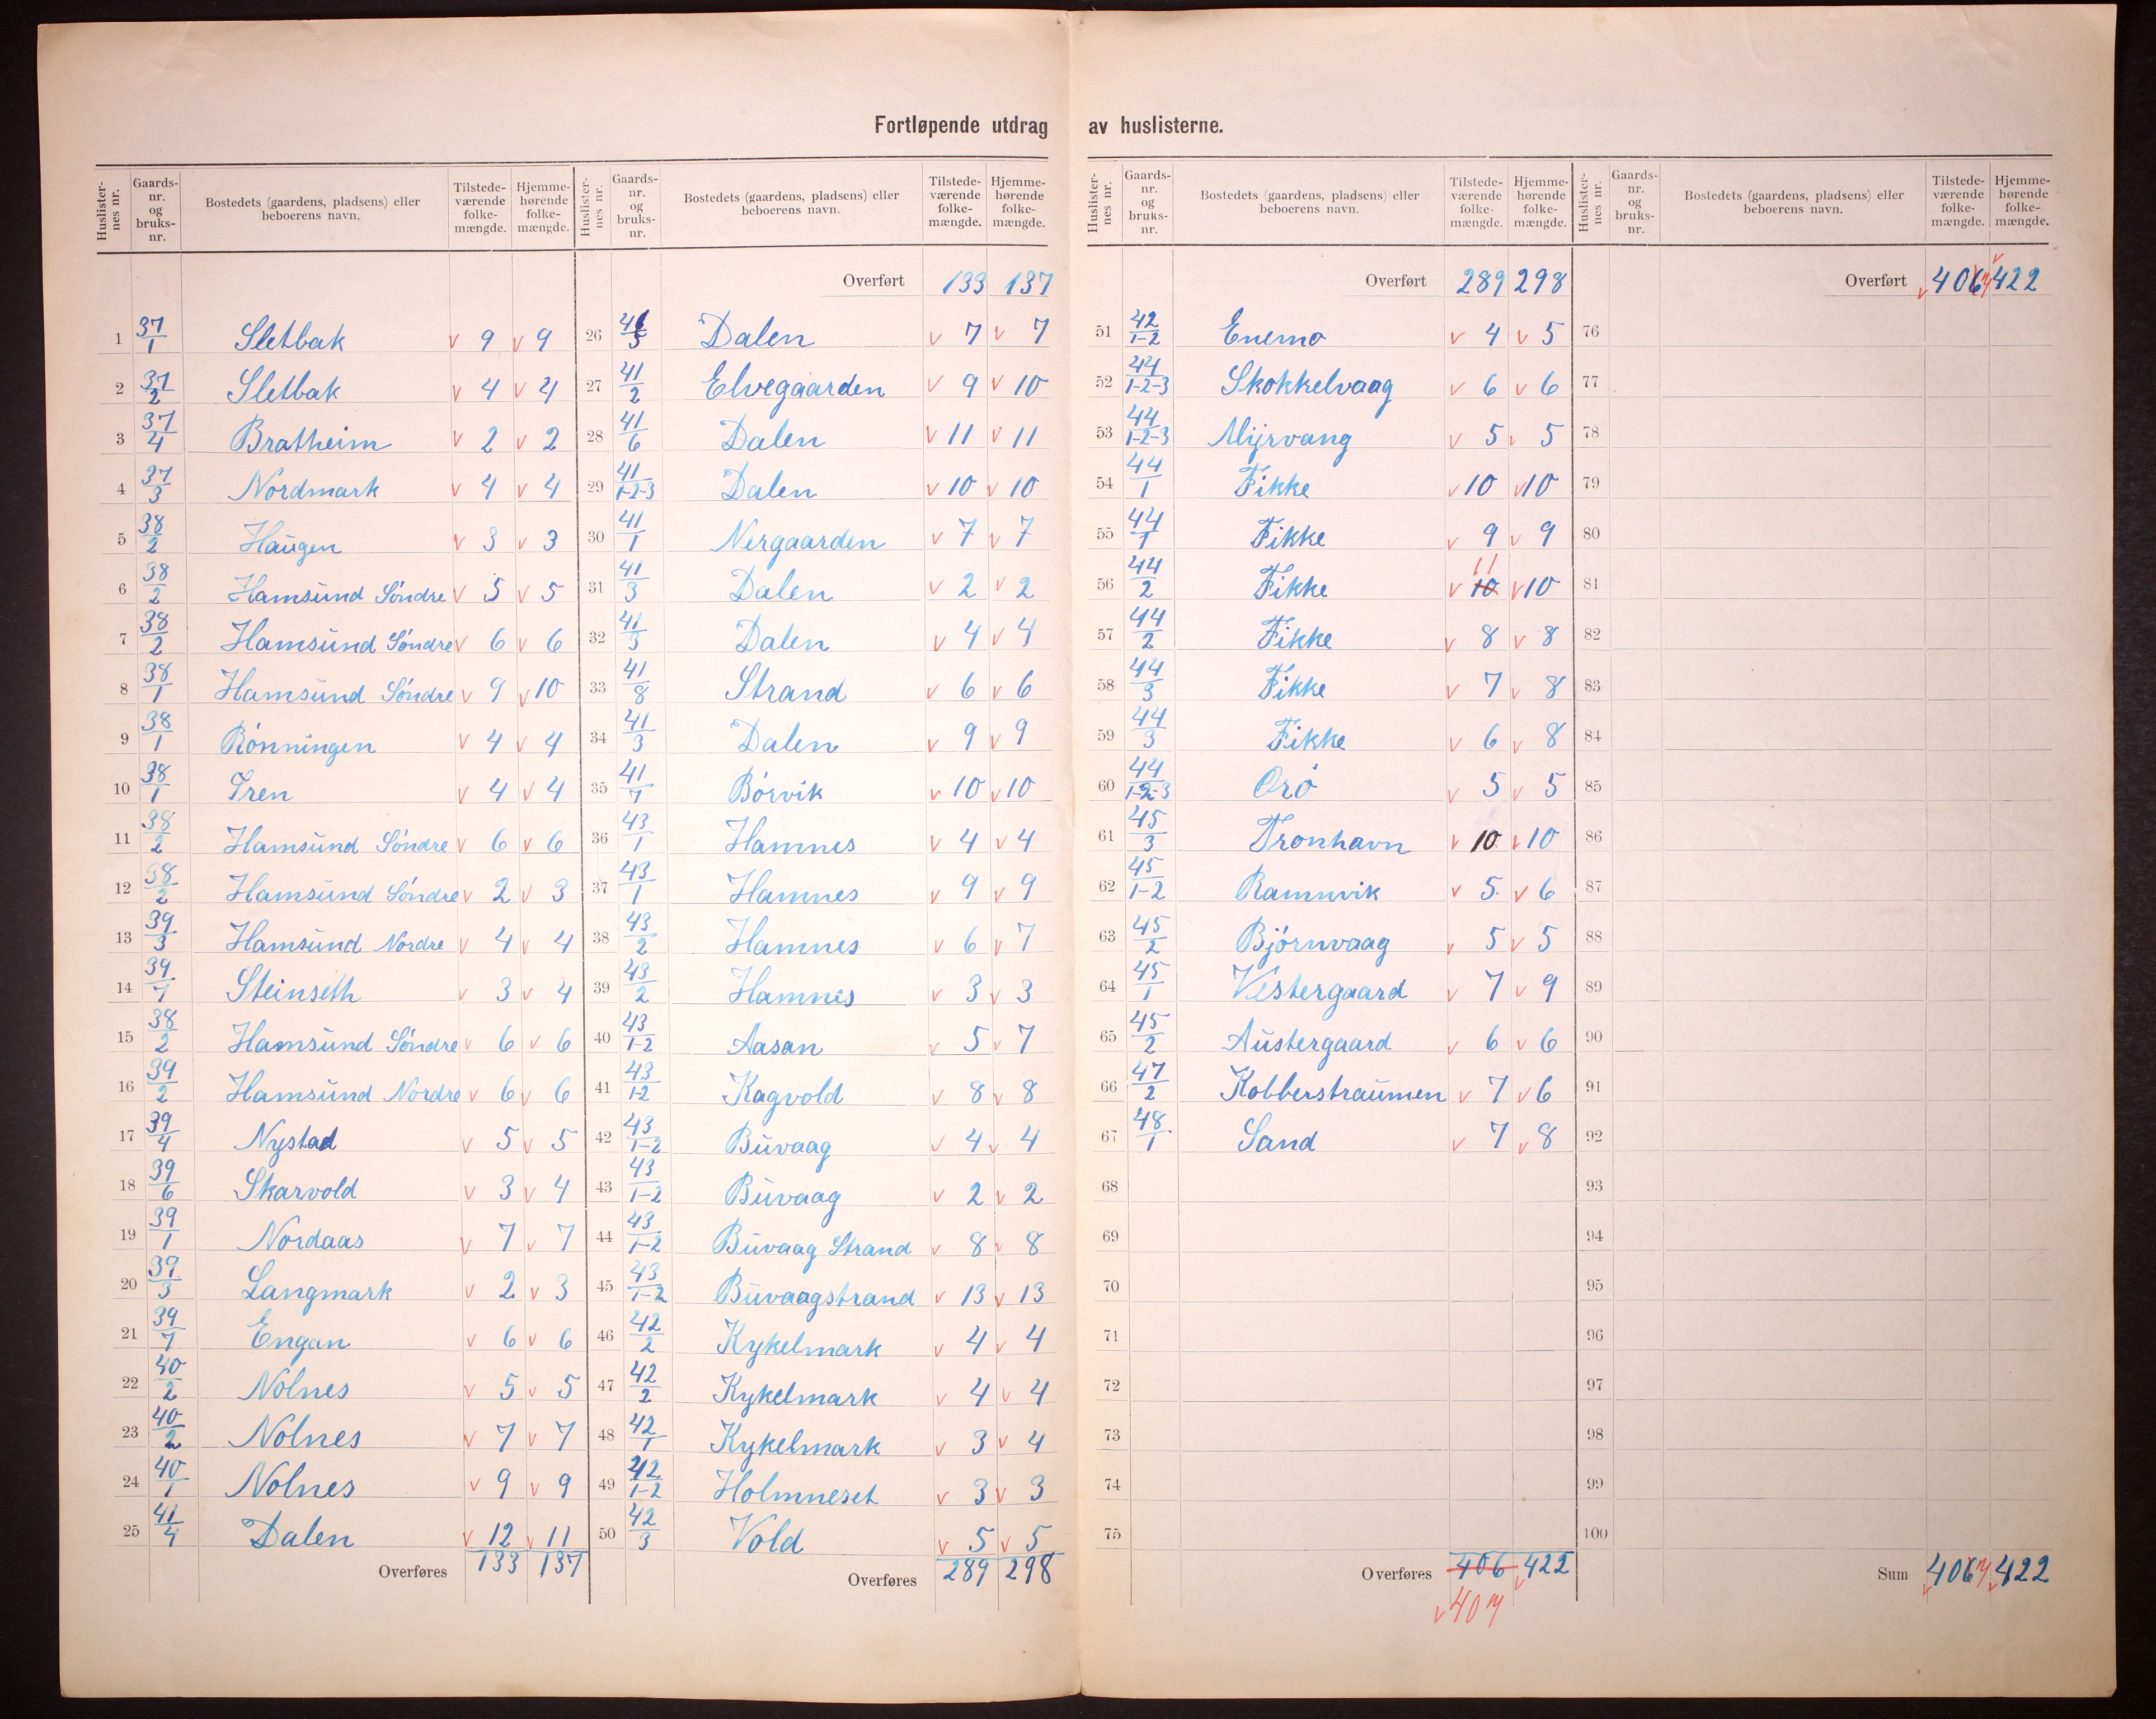 Fortløpende utdrag av huslisterne.
Huslisternes nr. Gaardsnr. og bruksnr. Bostedets (gaardens, pladsens) eller beboerens navn. Tilstedeværende folkemængde. Hjemmehørende folkemængde.
1 37/1 Sletbak v 9 v 9
2 37/2 Sletbak v 4 v 4
3 37/4 Bratheim v 2 v 2
4 37/3 Nordmark v 4 v 4
5 38/2 Haugen v 3 v 3
6 38/2 Hamsund Söndre v 5 v 5
7 38/2 Hamsund Söndre v 6 v 6
8 38/1 Hamsund Söndre v 9 v 10
9 38/1 Rönningen v 4 v 4
10 38/1 Tren v 4 v 4
11 38/2 Hamsund Söndre v 6 v 6
12 38/2 Hamsund Söndre v 2 v 3
13 39/3 Hamsund Nordre v 4 v 4
14 39/7 Steinseth v 3 v 4
15 38/2 Hamsund Söndre v 6 v 6
16 39/2 Hamsund Nordre v 6 v 6
17 39/4 Nystad v 5 v 5
18 39/6 Skarvold v 3 v 4
19 39/1 Nordaas v 7 v 7
20 39/3 Langmark v 2 v 3
21 39/7 Engan v 6 v 6
22 40/2 Nolnes v 5 v 5
23 40/2 Nolnes v 7 v 7
24 40/1 Nolnes v 9 v 9
25 41/4 Dalen v 12 v 11
Overføres 133 137
Huslisternes nr. Gaardsnr. og bruksnr. Bostedets (gaardens, pladsens) eller beboerens navn. Tilstedeværende folkemængde. Hjemmehørende folkemængde.
Overført 133 137
26 41/5 Dalen v 7 v 7
27 41/2 Elvegaarden v 9 v 10
28 41/6 Dalen v 11 v 11
29 41/1-2-3 Dalen v 10 v 10
30 41/1 Nergaarden v 7 v 7
31 41/3 Dalen v 2 v 2
32 41/3 Dalen v 4 v 4
33 41/8 Strand v 6 v 6
34 41/3 Dalen v 9 v 9
35 41/7 Börvik v 10 v 10
36 43/1 Hamnes v 4 v 4
37 43/1 Hamnes v 9 v 9
38 43/2 Hamnes v 6 v 7
39 43/2 Hamnes v 3 v 3
40 43/1-2 Aasan v 5 v 7
41 43/1-2 Kagvold v 8 v 8
42 43/1-2 Buvaag v 4 v 4
43 43/1-2 Buvaag v 2 v 2
44 43/1-2 Buvaag Strand v 8 v 8
45 43/1-2 Buvaagstrand v 13 v 13
46 42/2 Kykelmark v 4 v 4
47 42/2 Kykelmark v 4 v 4
48 42/1 Kykelmark v 3 v 4
49 42/1-2 Holmneset v 3 v 3
50 42/3 Vold v 5 v 5
Overføres 289 298
Huslisternes nr. Gaardsnr. og bruksnr. Bostedets (gaardens, pladsens) eller beboerens navn. Tilstedeværende folkemængde. Hjemmehørende folkemængde.
Overført 289 298
51 42/1-2 Enemo v 4 v 5
52 44/1-2-3 Skokkelvaag v 6 v 6
53 44/1-2-3 Myrvang v 5 v 5
54 44/1 Fikke v 10 v 10
55 44/1 Fikke v 9 v 9
11
56 44/2 Fikke v 10 v 10
57 44/2 Fikke v 8 v 8
58 44/3 Fikke v 7 v 8
59 44/3 Fikke v 6 v 8
60 44/1-2-3 Orö v 5 v 5
61 45/3 Tronhavn v 10 v 10
62 45/1-2 Ramnvik v 5 v 6
63 45/2 Björnvaag v 5 v 5
64 45/1 Vestergaard v 7 v 9
65 45/2 Austergaard v 6 v 6
66 47/2 Kobberstraumen v 7 v 6
67 48/1 Sand v 7 v 8
68
69
70
71
72
73
74
75
Overføres 406 v 422
v 407
Huslisternes nr. Gaardsnr. og bruksnr. Bostedets (gaardens, pladsens) eller beboerens navn. Tilstedeværende folkemængde. Hjemmehørende folkemængde.
Overført v 406 7 v 422
76
77
78
79
80
81
82
83
84
85
86
87
88
89
90
91
92
93
94
95
96
97
98
99
100
Sum v 406 7 v 422